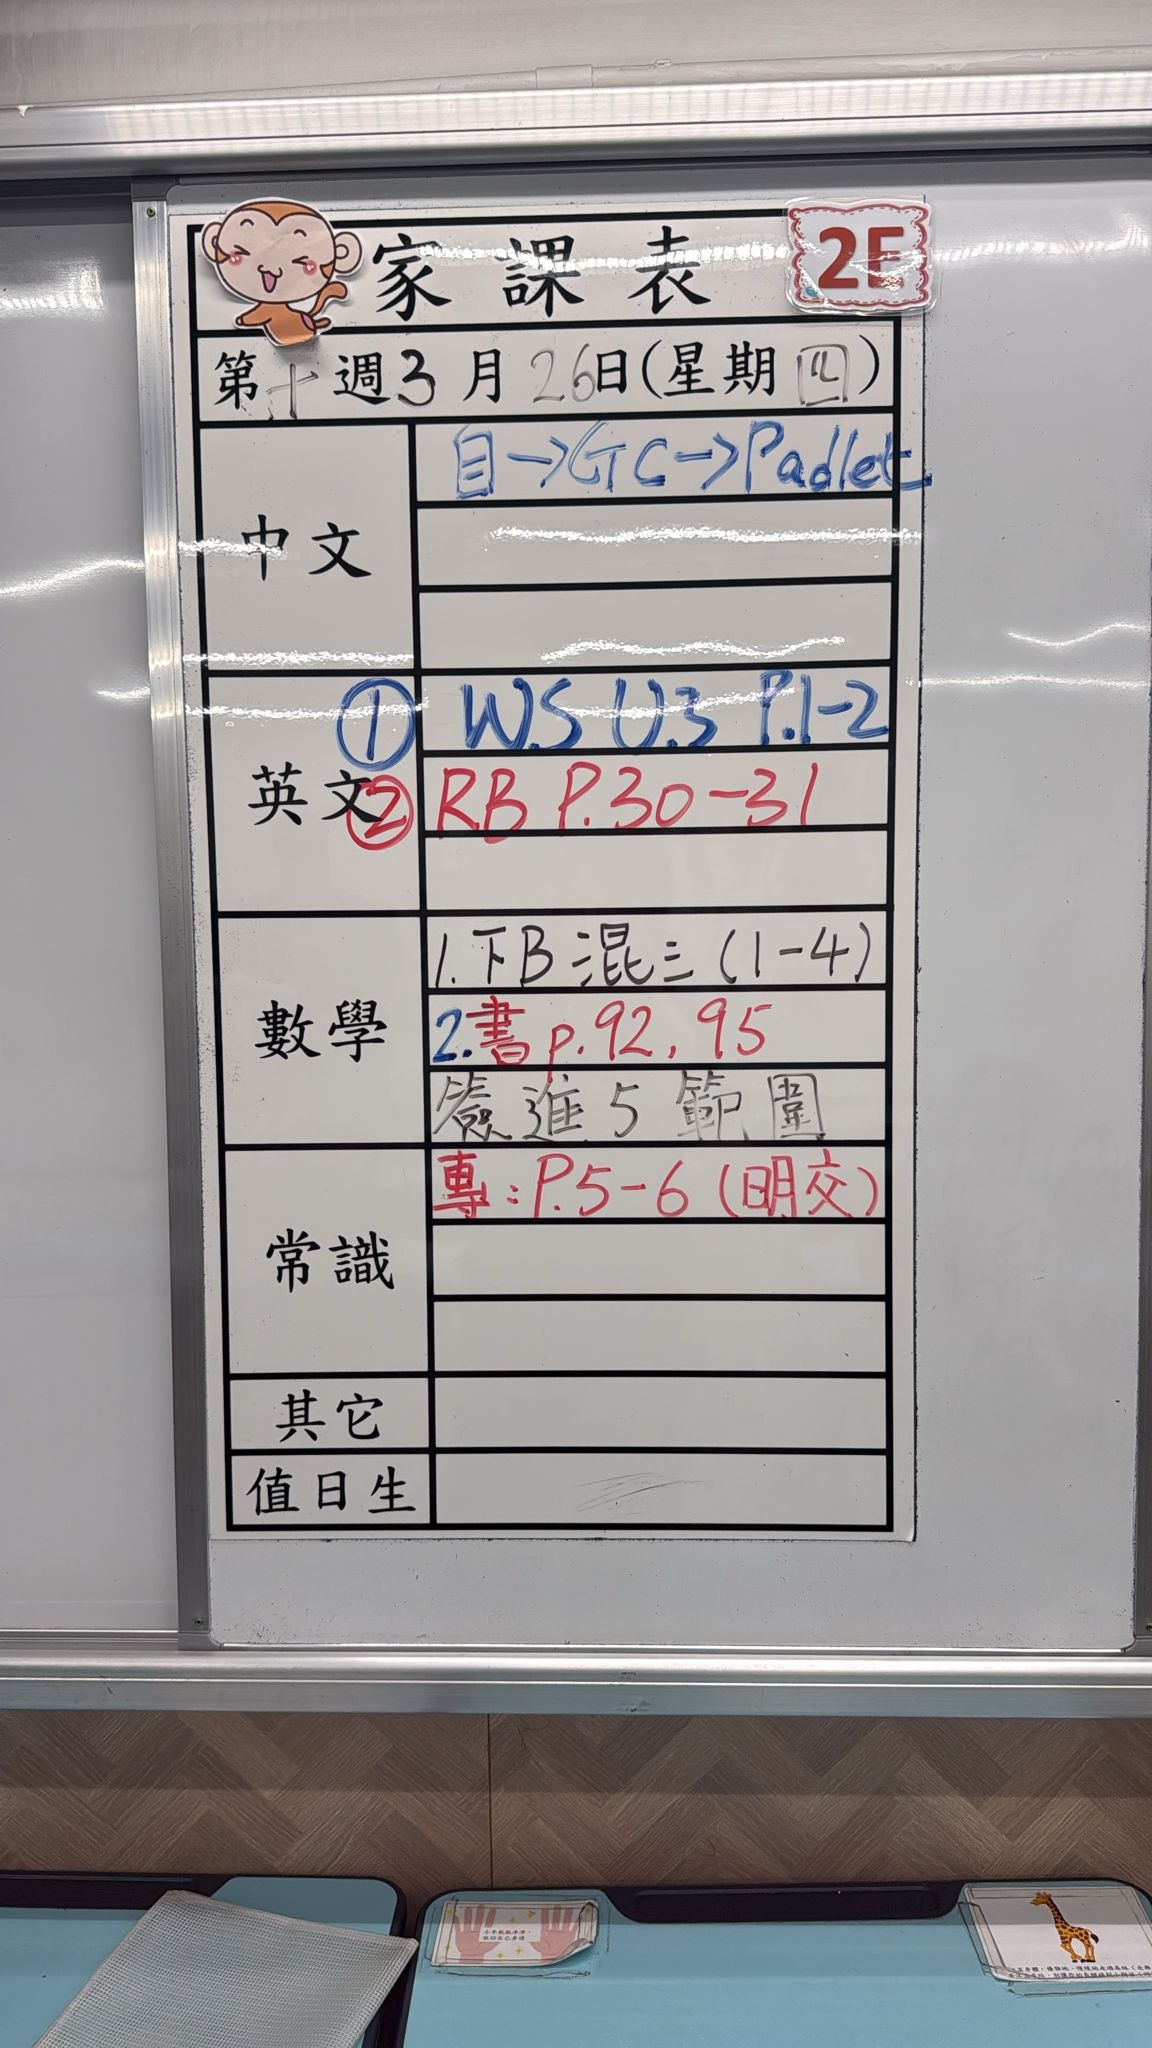 家課表
2E
第十週3月26日(星期四)
中文
目→GC→Padlet
英文
① W.S U.3 P.1-2
② R.B P.30-31
數學
1.下B混三(1-4)
2.書p.92,95
簽進5範圍
常識
專:P.5-6(明交)
其它
值日生